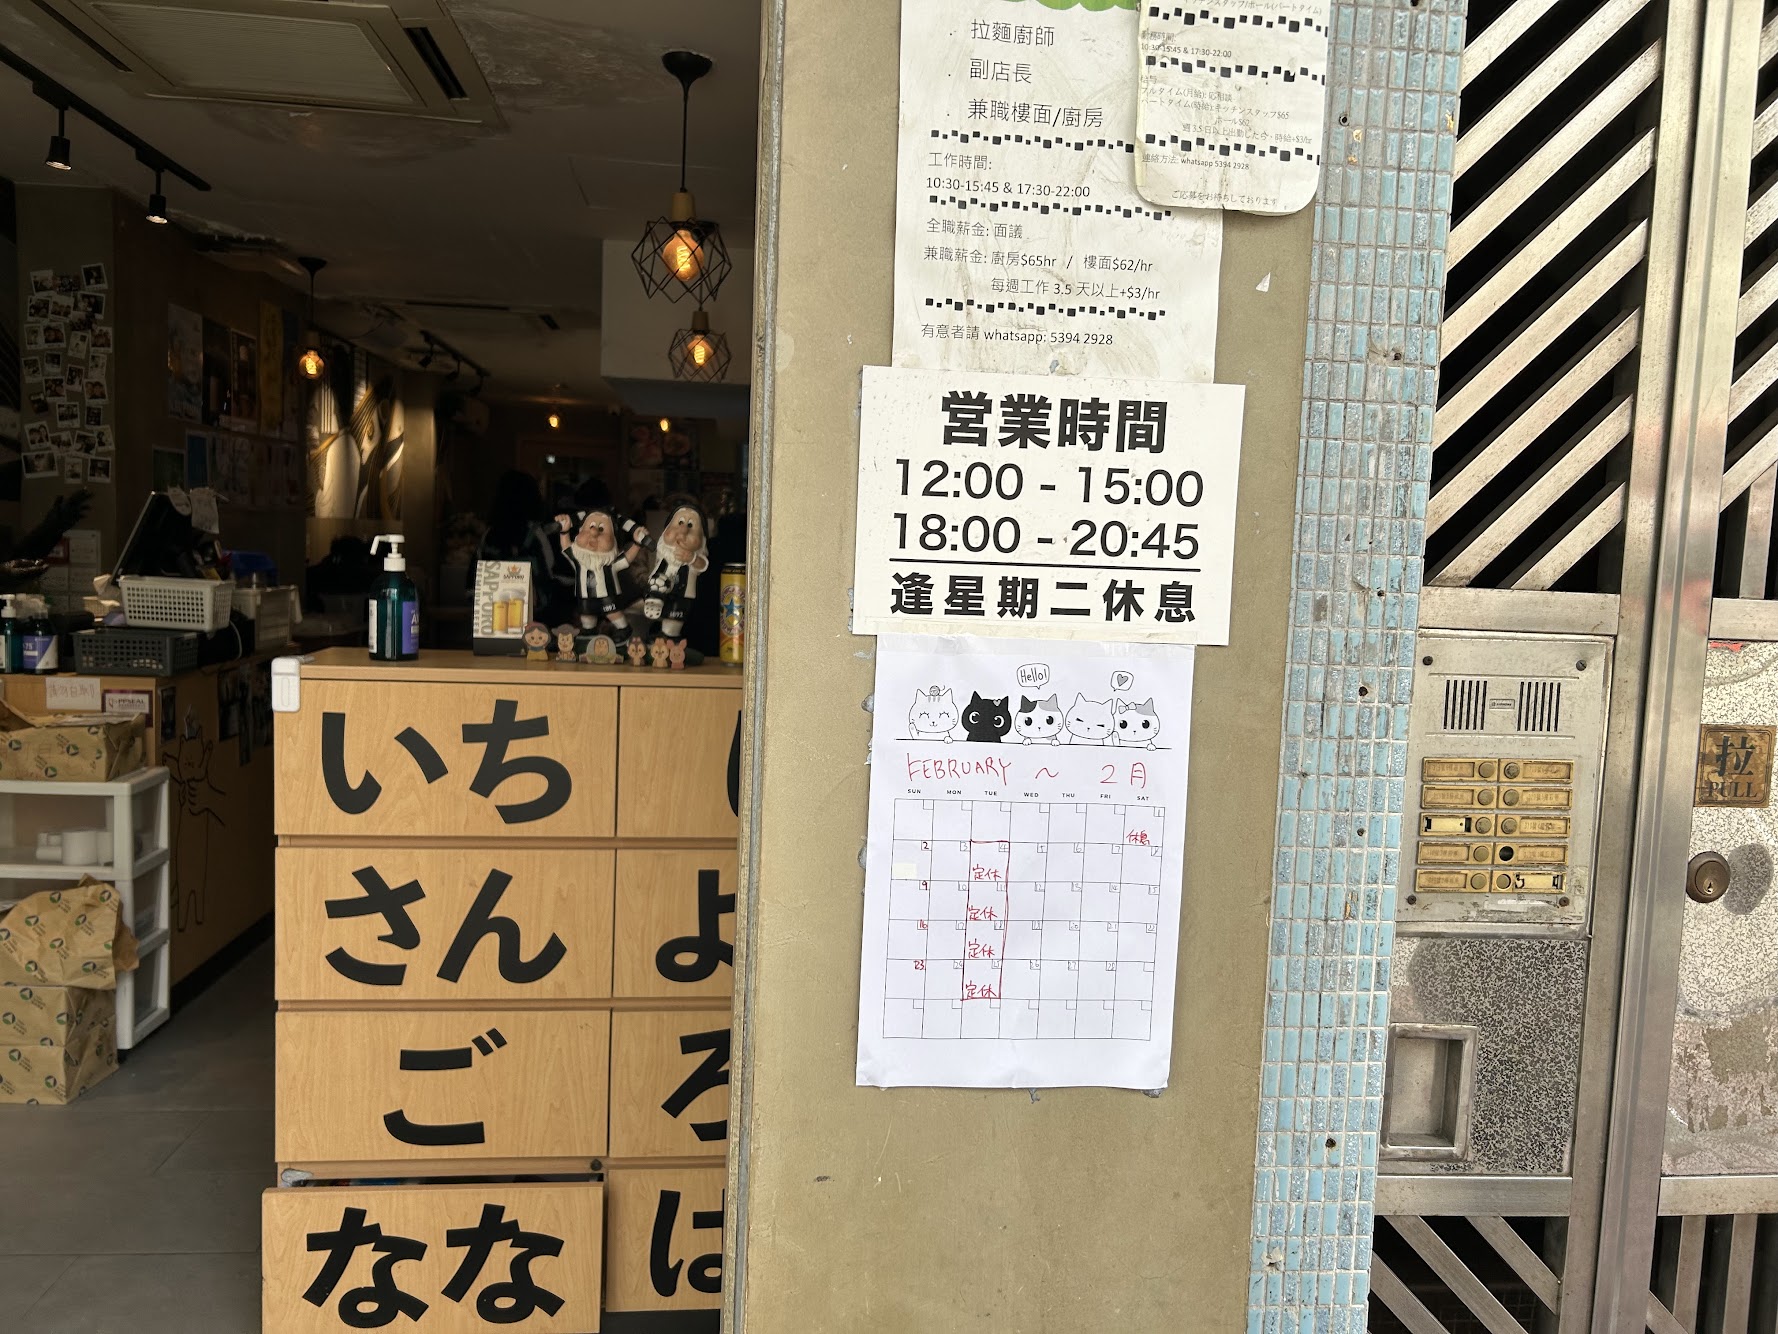 拉麵廚師
副店長
兼職樓面/廚房
工作時間:
10:30-15:45 & 17:30-22:00
全職薪金: 面議
兼職薪金: 廚房$65hr / 樓面$62/hr
每週工作 3.5 天以上+$3/hr
有意者請 whatsapp: 5394 2928
10:30-15:45 & 17:30-22:00
フルタイム(月給): 応相談
パートタイム(時給): キッチンスタッフ$65
ホール$62
連絡方法: whatsapp 5394 2928
ご応募をお待ちしております
営業時間
12:00 - 15:00
18:00 - 20:45
逢星期二休息
Hello!
FEBRUARY ～ 2月
SUN MON TUE WED THU FRI SAT
1
休息
2 3 4 5 6 7
定休
9 10 11 12 13 14 15
定休
16 17
定休
23 24 25 26 27 28
定休
いち
さん
ご
なな
よ
ろ
は
SAPPORO
1892
1892
拉
PULL